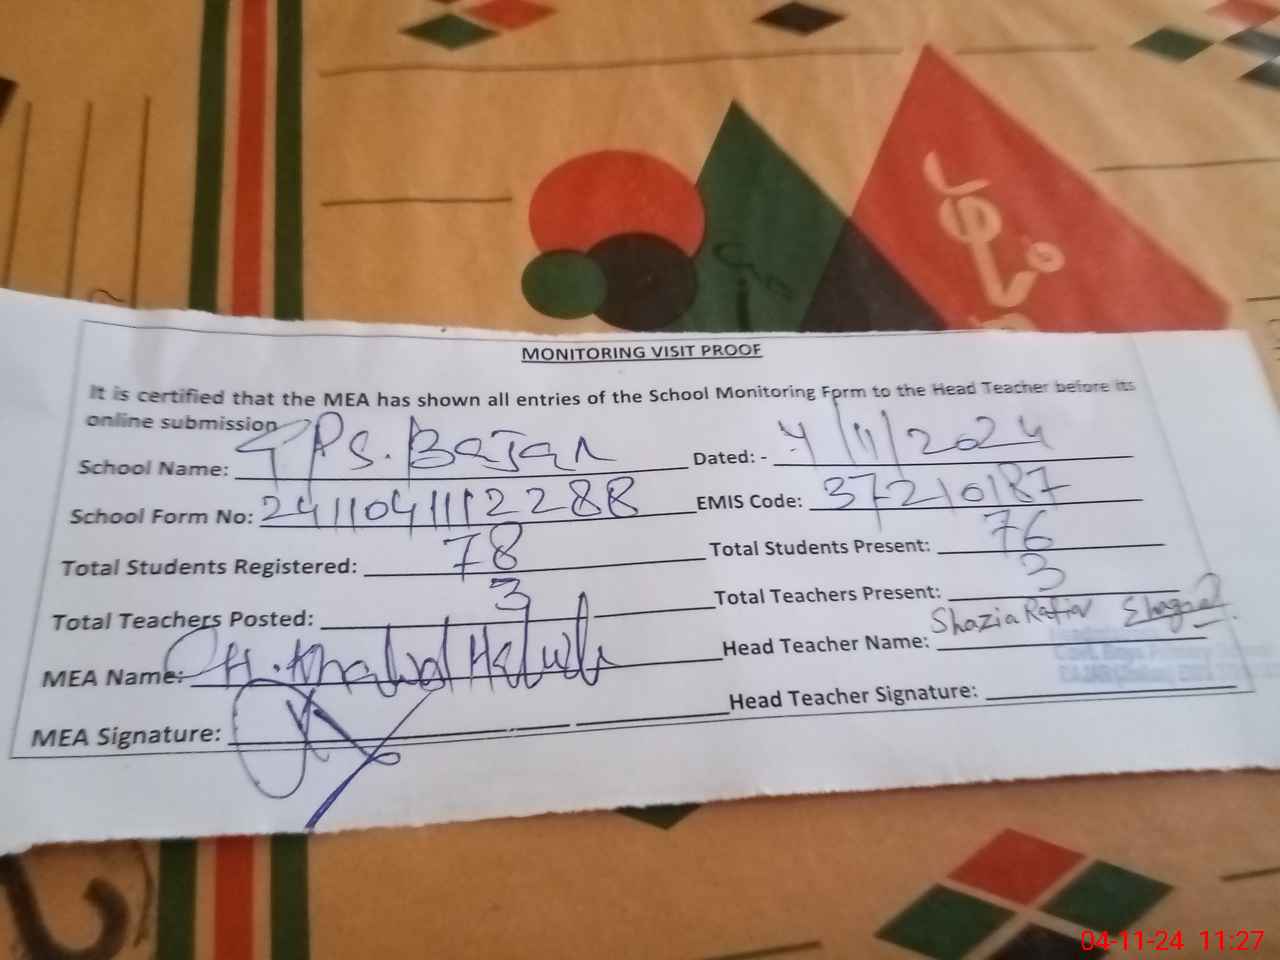 MONITORING VISIT PROOF
It is certified that the MEA has shown all entries of the School Monitoring Form to the Head Teacher before its
online submission
School Name: GPS. Bajan Dated: - 4/11/2024
School Form No: 2411041112288 EMIS Code: 37210187
Total Students Registered: 78 Total Students Present: 76
Total Teachers Posted: 3 Total Teachers Present: 3
MEA Name: Khalid Head Teacher Name: Shazia
MEA Signature: Head Teacher Signature:
04-11-24 11:27